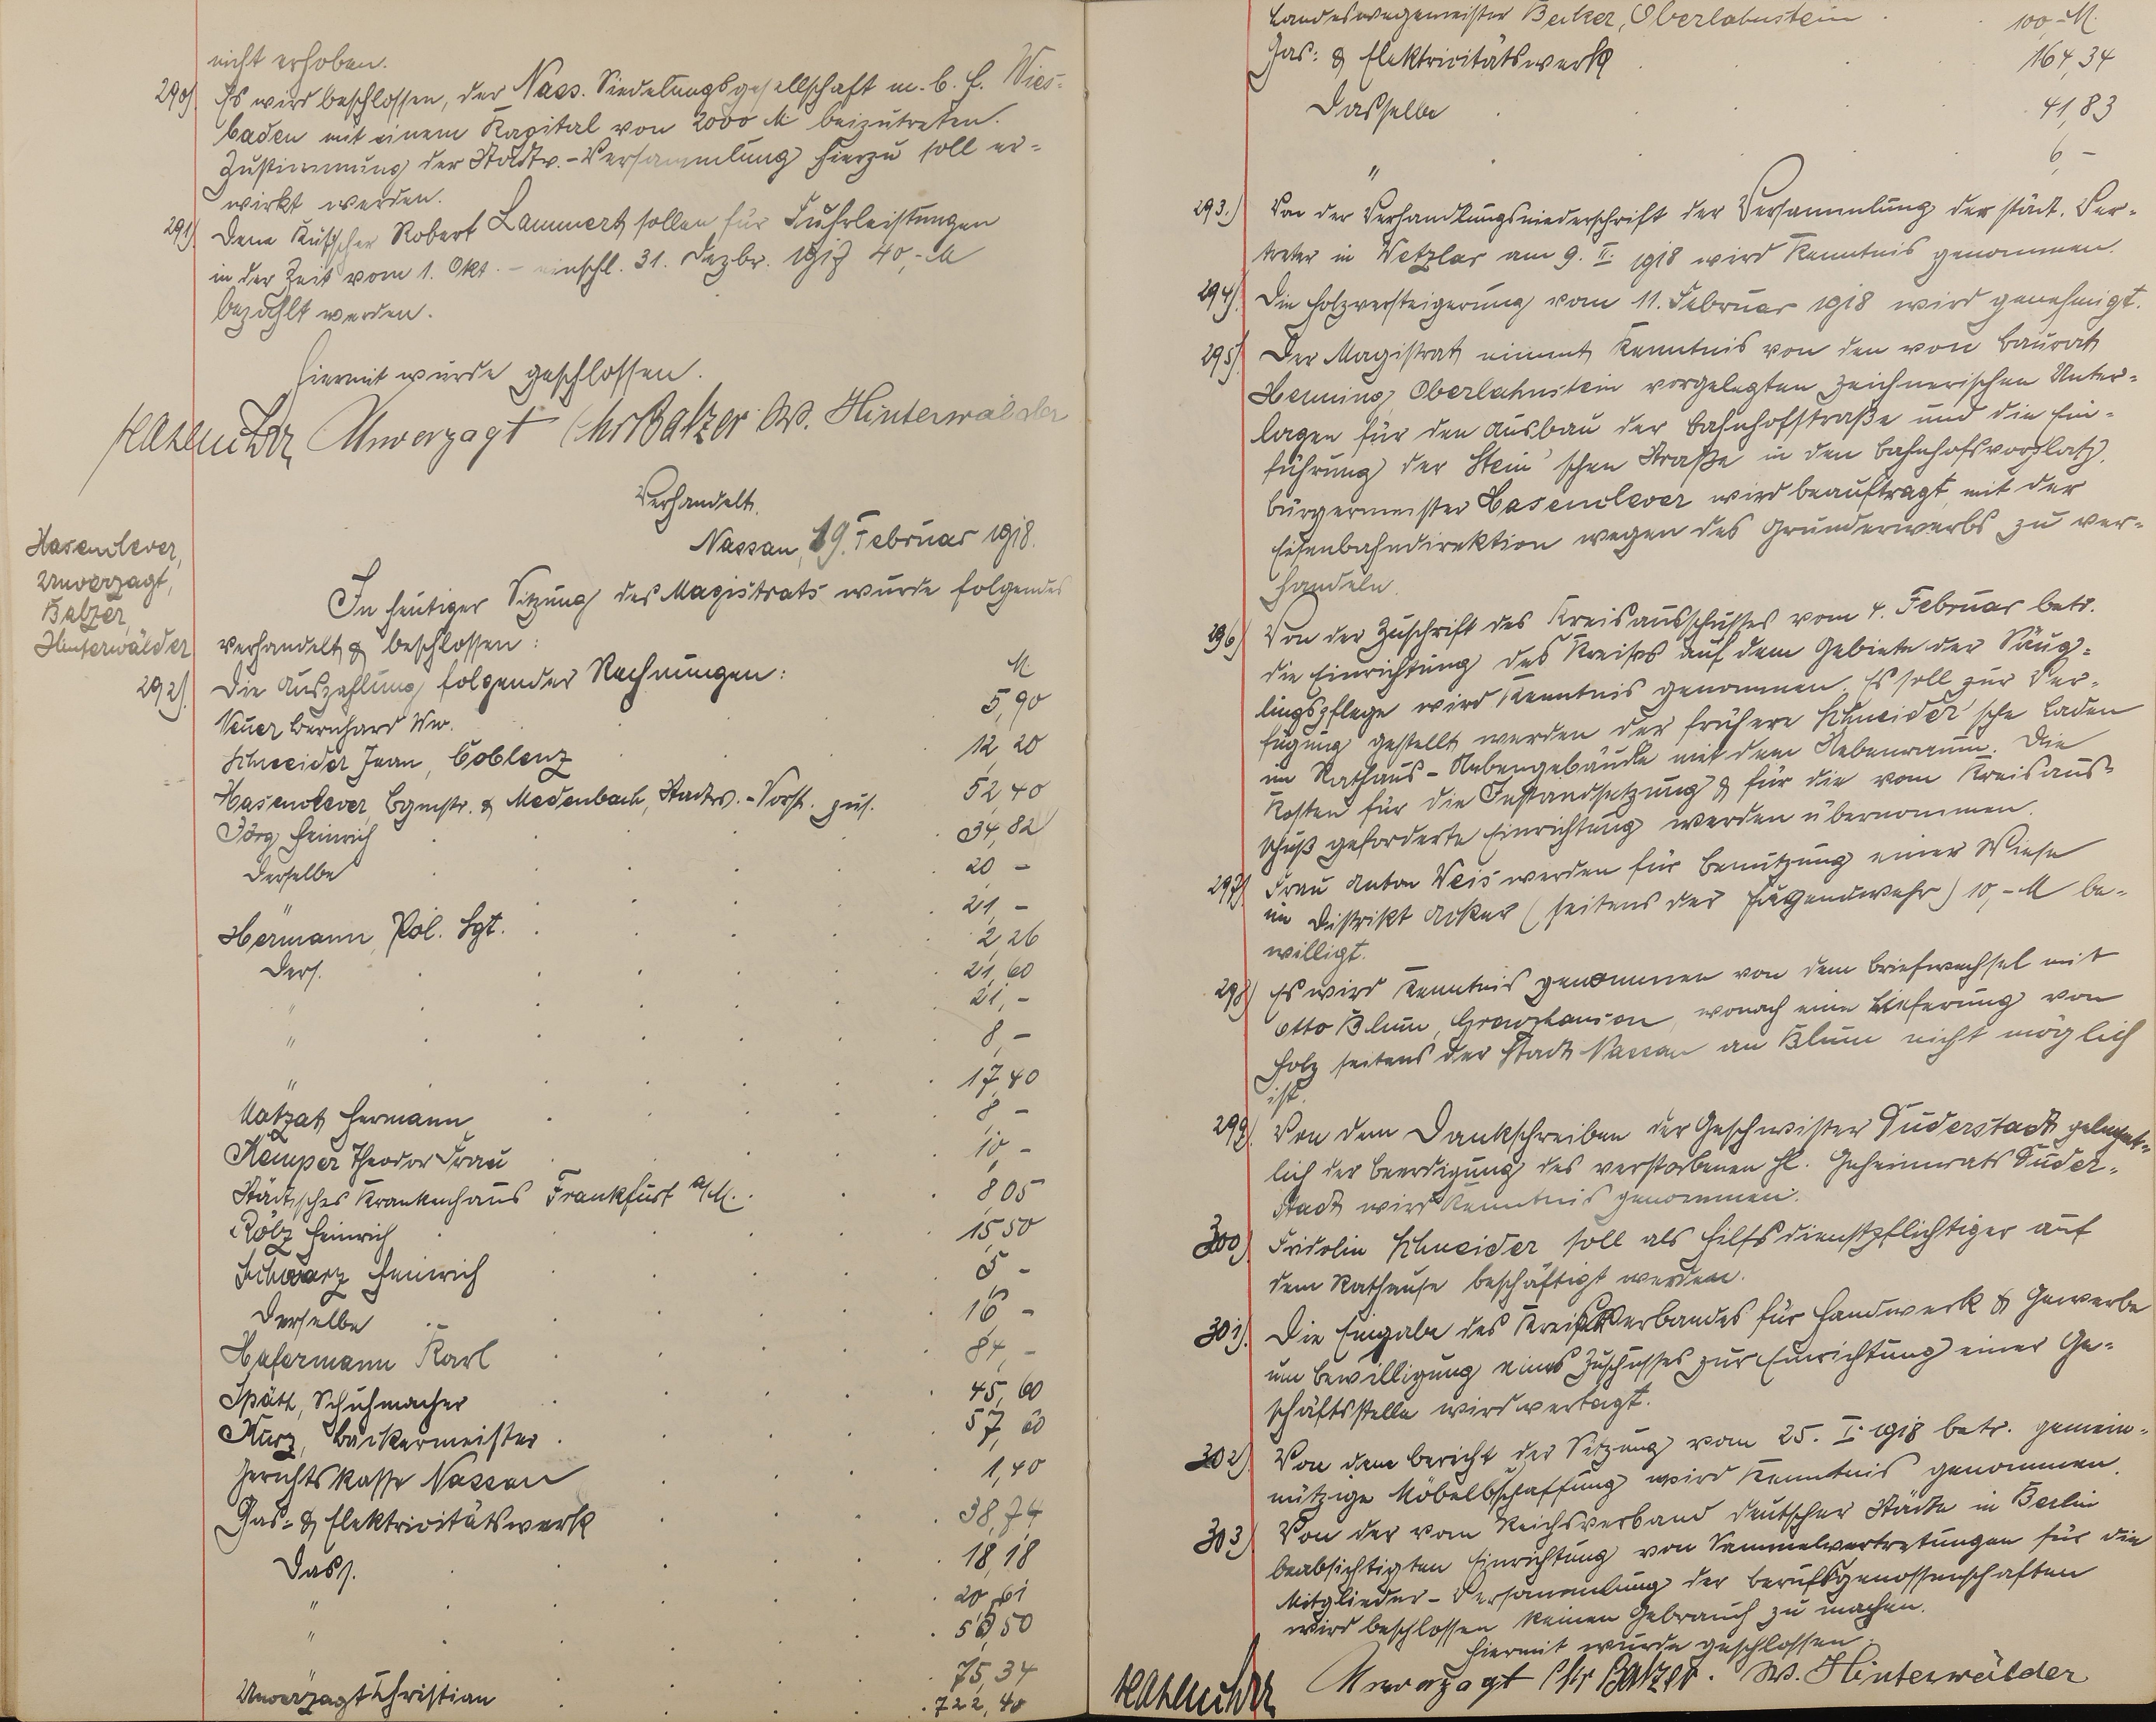 nicht erhoben.
290) Es wird beschlossen, der Nass. Siedelungsgesellschaft m. b. H. Wies-
baden mit einem Kapital von 2000 M beizutreten.
Zustimmung der Stadtv.-Versammlung hierzu soll er-
wirkt werden.
291) Dem Kutscher Robert Lammert sollen für Fuhrleistungen
in der Zeit vom 1. Okt. - einschl. 31. Dezbr. 1917 40,- M
bezahlt werden.
Hiermit wurde geschlossen.
Hasenclever Unverzagt Chr Balzer W. Hinterwälder
Verhandelt.
Nassau, 19. Februar 1918.
Hasenclever,
Unverzagt,
Balzer,
Hinterwälder
In heutiger Sitzung des Magistrats wurde folgendes
verhandelt & beschlossen:
292) Die Auszahlung folgender Rechnungen: M
Neuer Bernhard Ww. 5,90
Schneider Jean, Coblenz 12,20
Hasenclever, Bgmstr. & Medenbach, Stadtv.-Vorst. zus. 52,40
Jörg Heinrich 34,82
Derselbe 20 -
" 21,-
Hermann, Pol. Sgt. 2,26
Ders. 21,60
" 21,-
" 8,-
" 17,40
Matzat Hermann 8 -
Kemper Theodor Frau 10,-
Städtisches Krankenhaus Frankfurt a/M. 8,05
Rölz Heinrich 15,50
Schwarz Heinrich 5 -
Derselbe 16 -
Hafermann Karl 84,-
Spätt, Schuhmacher 45,60
Kurz, Bäckermeister 57,60
Gerichtskasse Nassau 1,40
Gas- & Elektricitätswerk 38,74
Dass. 18,18
" 20,61
" 50,50
" 75,34
Unverzagt Christian 722,40
Landeswegemeister Becker, Oberlahnstein 100,- M.
Gas- & Elektricitätswerk 164,34
Dasselbe 41,83
" 6,-
293.) Von der Verhandlungsniederschrift der Versammlung der städt. Ver-
treter in Wetzlar am 9. II. 1918 wird Kenntnis genommen.
294) Die Holzversteigerung vom 11. Februar 1918 wird genehmigt.
295) Der Magistrat nimmt Kenntnis von den von Baurat
Henning, Oberlahnstein vorgelegten zeichnerischen Unter-
lagen für den Ausbau der Bahnhofstraße und die Ein-
führung der Stein'schen Straße in den Bahnhofsvorplatz.
Bürgermeister Hasenclever wird beauftragt, mit der
Eisenbahndirektion wegen des Grunderwerbs zu ver-
handeln.
296) Von der Zuschrift des Kreisausschusses vom 4. Februar betr.
die Einrichtung des Kreises auf dem Gebiete der Säug-
lingspflege wird Kenntnis genommen. Es soll zur Ver-
fügung gestellt werden der frühere Schneider'sche Laden
im Rathaus-Nebengebäude mit dem Nebenraum. Die
Kosten für die Instandsetzung & für die vom Kreisaus-
schuß geforderte Einrichtung werden übernommen.
297) Frau Anton Weis werden für Benutzung einer Wiese
im Distrikt Acker (seitens der Jugendwehr) 10,- M be-
willigt.
298) Es wird Kenntnis genommen von dem Briefwechsel mit
Otto Blum, wonach eine Lieferung von
Holz seitens der Stadt Nassau an Blum nicht möglich
ist.
299) Von dem Dankschreiben der Geschwister Duderstadt gelegent-
lich der Beerdigung des verstorbenen H. Geheimrats Duder-
stadt wird Kenntnis genommen.
300) Fridolin Schneider soll als Hilfsdienstpflichtiger auf
dem Rathause beschäftigt werden.
301) Die Eingabe des Kreisverbandes für Handwerk & Gewerbe
um Bewilligung eines Zuschusses zur Einrichtung einer Ge-
schäftsstelle wird vertagt.
302) Von dem Bericht der Sitzung vom 25. I. 1918 betr. gemein-
nützige Möbelbeschaffung wird Kenntnis genommen.
303) Von der vom Reichsverband deutscher Städte in Berlin
beabsichtigten Einrichtung von Sammelvertretungen für die
Mitglieder-Versammlung der Berufsgenossenschaften
wird beschlossen keinen Gebrauch zu machen.
Hiermit wurde geschlossen.
Hasenclever Unverzagt Chr Balzer. W. Hinterwälder